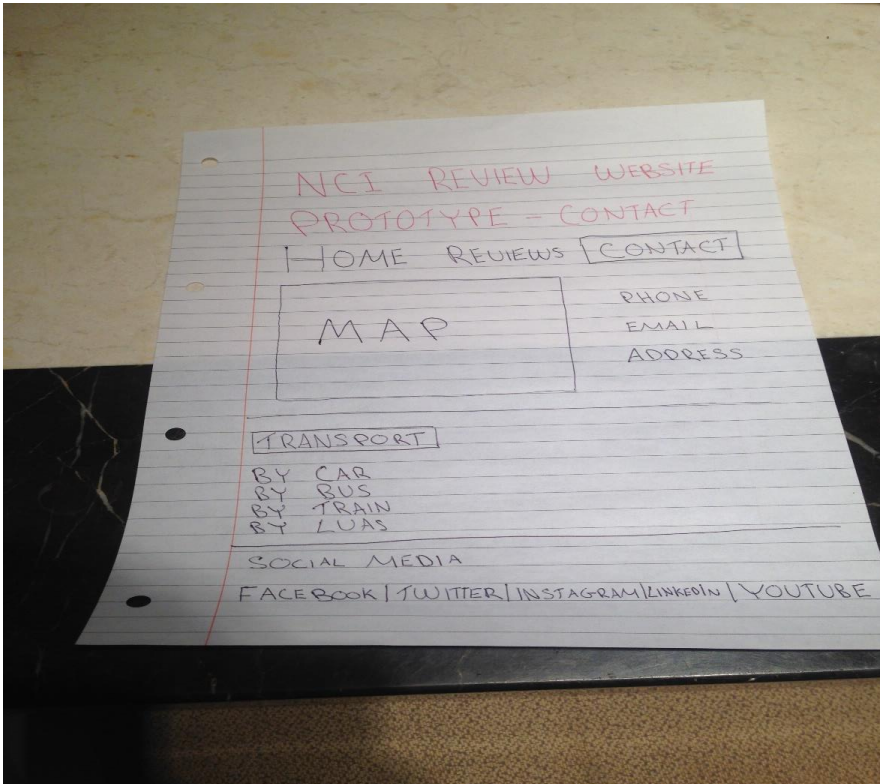 NCI REVIEW WEBSITE
PROTOTYPE - CONTACT
HOME REVIEWS CONTACT
MAP
PHONE
EMAIL
ADDRESS
TRANSPORT
BY CAR
BY BUS
BY TRAIN
BY LUAS
SOCIAL MEDIA
FACEBOOK | TWITTER | INSTAGRAM | LINKEDIN | YOUTUBE